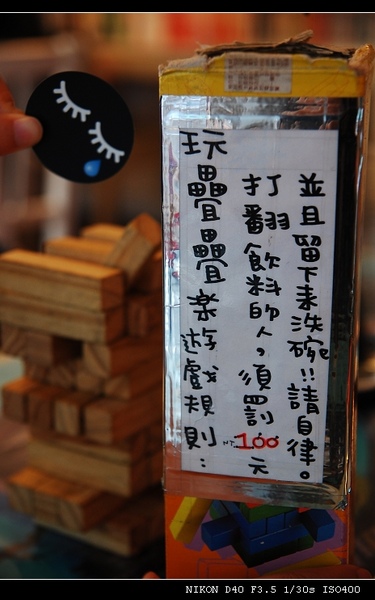 玩疊疊楽遊戲規則:
打翻飲料的人。須罰NT.100元
並且留下来洗碗!!請自律。
NIKON D40 F3.5 1/30s ISO400